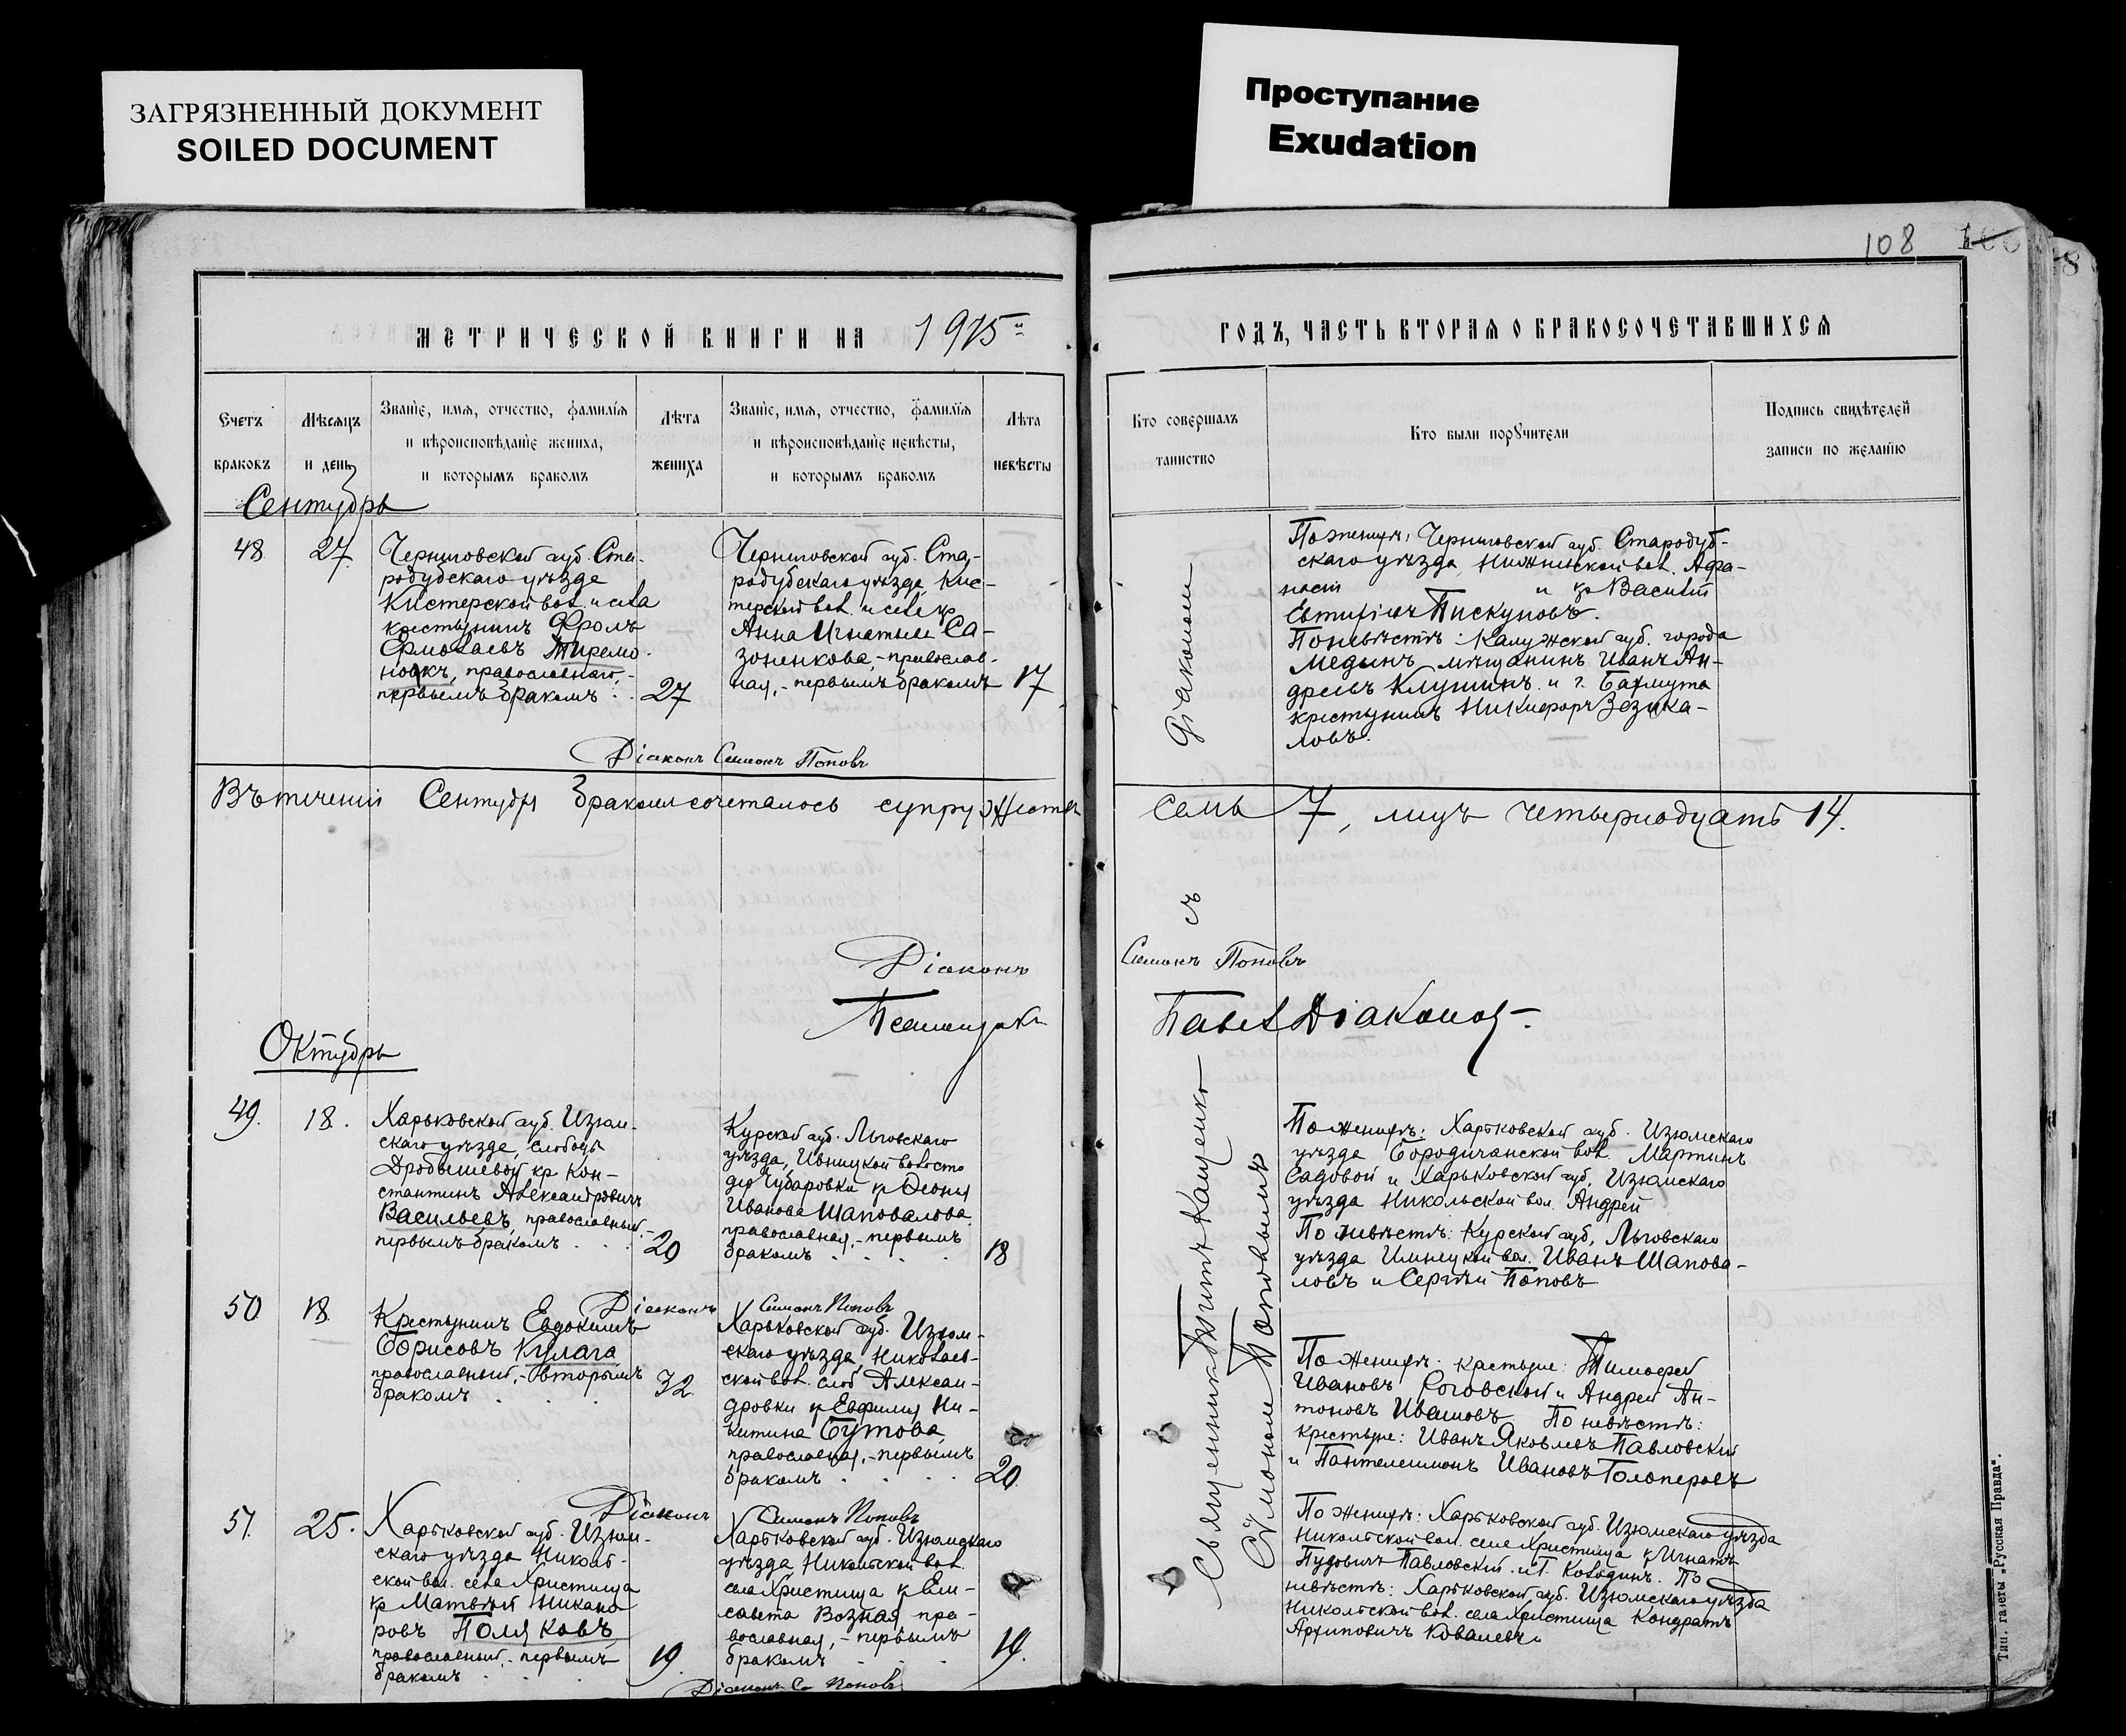 ЗАГРЯЗНЕННЫЙ ДОКУМЕНТ
SOILED DOCUMENT
Проступание
Exudation
108
МЕТРИЧЕСКОЙ КНИГИ НА 1915
ГОДЪ, ЧАСТЬ ВТОРАЯ О БРАКОСОЧЕТАВШИХСЯ
Счетъ браковъ
Мѣсяцъ и день
Званіе, имя, отчество, фамилія и вѣроисповѣданіе жениха, и которымъ бракомъ
Лѣта жениха
Званіе, имя, отчество, фамилія и вѣроисповѣданіе невѣсты, и которымъ бракомъ
Лѣта невѣсты
Кто совершалъ таинство
Кто были поручители
Подпись свидѣтелей записи по желанію
Сентябрь
48
27
Черниговской губ. Ста-
родубскаго уѣзда
Кистерской вол. и села
крестьянинъ Фролъ
Ермолаевъ
православнаго,-
первымъ бракомъ
27
Черниговской губ. Ста-
родубскаго уѣзда, Кис-
терской вол. и села кр
Анна Игнатьева Са-
зоненкова,-православ-
ная,-первымъ бракомъ
17
Діаконъ Симонъ Поповъ
По женихѣ: Черниговской губ. Стародуб-
скаго уѣзда вол. Афа-
насій и кр Василій
Пискуновъ.
По невѣстѣ: Калужской губ. города
Медынъ мѣщанинъ Иванъ Ан-
дреевъ Клушинъ и г. Бахмута
крестьянинъ Никифоръ
ловъ.
Въ теченіи Сентября бракомъ сочеталось супружествъ
семь 7, лицъ четырнадцать 14.
съ
Діаконъ
Симонъ Поповъ
Псаломщикъ
Павелъ Діаконов
Октябрь
49.
18.
Харьковской губ. Изюм-
скаго уѣзда, слободы
Дробышевой кр Кон-
стантинъ Александровичъ
Васильевъ, православный,-
первымъ бракомъ
20
Курской губ. Льговскаго
уѣзда, Ивницкой волости
дер Губаровки кр
Иванова Шаповалова
православная,-первымъ
бракомъ
18
Діаконъ Симонъ Поповъ
Священникъ Титъ Кащенко
Симономъ Поповымъ
По женихѣ: Харьковской губ. Изюмскаго
уѣзда Бородичанской вол. Мартинъ
Садовой и Харьковской губ, Изюмскаго
уѣзда Никольской вол. Андрей
По невѣстѣ: Курской губ, Льговскаго
уѣзда вол. Иванъ Шапова-
ловъ и Сергѣй Поповъ
50
18.
Крестьянинъ Евдокимъ
Борисовъ Кулага
православный,-вторымъ
бракомъ
32.
Харьковской губ. Изюм-
скаго уѣзда, Николаев-
ской вол. слоб Алексан-
дровки кр Евфимія Ни-
китина Бутова
православная,-первымъ
бракомъ
20.
Діаконъ Симонъ Поповъ
По женихѣ: крестьяне: Тимофей
Ивановъ Роговской и Андрей Ан-
тоновъ Ивановъ По невѣстѣ:
крестьяне: Иванъ Яковлевъ Павловскій
и Пантелеимонъ Ивановъ Голоперовъ
51.
25.
Харьковской губ. Изюм-
скаго уѣзда Николь-
ской вол. села Христища
кр Матвѣй Никано-
ровъ Поляковъ
православный,-первымъ
бракомъ
19.
Харьковской губ. Изюмскаго
уѣзда Никольской вол.
села Христища кр Ели-
савета Возная пра-
вославная,-первымъ
бракомъ
19.
Діаконъ С Поповъ
По женихѣ: Харьковской губ. Изюмскаго уѣзда
Никольской вол. села Христища кр Игнатъ
Пудовичъ Павловскій и Г. Колодинъ. По
невѣстѣ: Харьковской губ. Изюмскаго уѣзда
Никольской вол. села Христища Кондратъ
Архиповичъ Ковалевъ
Тип. газеты „Русская Правда“.